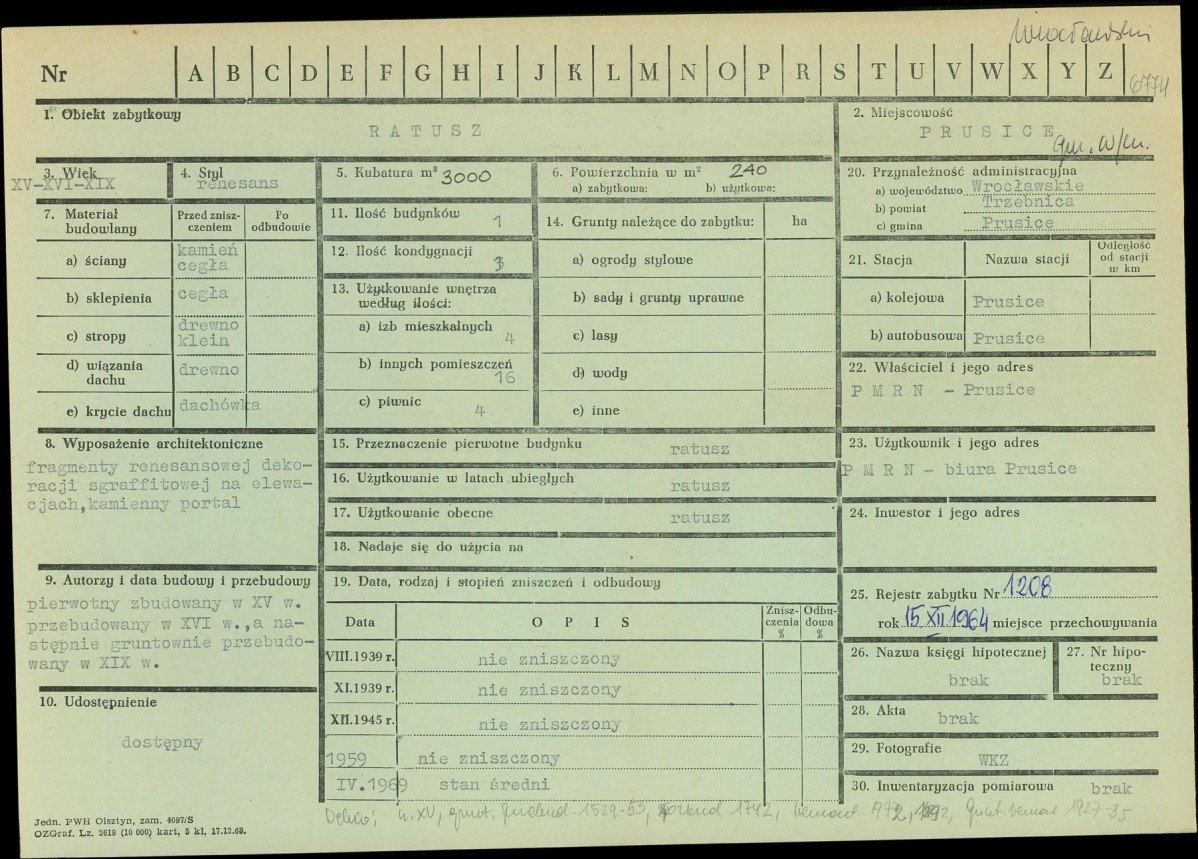 Wrocławski
Nr A B C D E F G H I J K L M N O P R S T U V W X Y Z
6774
1. Obiekt zabytkowy
RATUSZ
2. Miejscowość
PRUSICE
gm. w/m.
3. Wiek
XV-XVI-XIX
4. Styl
renesans
5. Kubatura m³ 3000
6. Powierzchnia w m² 240
a) zabytkowa: b) użytkowa:
20. Przynależność administracyjna
a) województwo Wrocławskie
b) powiat Trzebnica
c) gmina Prusice
7. Materiał budowlany
Przed zniszczeniem
Po odbudowie
a) ściany kamień cegła
b) sklepienia cegła
c) stropy drewno klein
d) wiązania dachu drewno
e) krycie dachu dachówka
11. Ilość budynków 1
12. Ilość kondygnacji 3
13. Użytkowanie wnętrza
według ilości:
a) izb mieszkalnych 4
b) innych pomieszczeń 16
c) piwnic 4
14. Grunty należące do zabytku: ha
a) ogrody stylowe
b) sady i grunty uprawne
c) lasy
d) wody
e) inne
21. Stacja
Nazwa stacji
Odległość od stacji w km
a) kolejowa Prusice
b) autobusowa Prusice
22. Właściciel i jego adres
P M R N - Prusice
8. Wyposażenie architektoniczne
fragmenty renesansowej deko-
racji sgraffitowej na elewa-
cjach,kamienny portal
15. Przeznaczenie pierwotne budynku ratusz
16. Użytkowanie w latach ubiegłych ratusz
17. Użytkowanie obecne ratusz
18. Nadaje się do użycia na
23. Użytkownik i jego adres
P M R N - biura Prusice
24. Inwestor i jego adres
9. Autorzy i data budowy i przebudowy
pierwotny zbudowany w XV w.
przebudowany w XVI w.,a na-
stępnie gruntownie przebudo-
wany w XIX w.
10. Udostępnienie
dostępny
19. Data, rodzaj i stopień zniszczeń i odbudowy
Data OPIS Zniszczenia % Odbudowa %
VIII.1939 r. nie zniszczony
XI.1939 r. nie zniszczony
XII.1945 r. nie zniszczony
1959 nie zniszczony
IV.1969 stan średni
25. Rejestr zabytku Nr 1208
rok 15 XII 1964 miejsce przechowywania
26. Nazwa księgi hipotecznej
brak
27. Nr hipoteczny
brak
28. Akta brak
29. Fotografie
WKZ
30. Inwentaryzacja pomiarowa brak
XV, grunt. 1529-53, 1742, remont 1927-35
Jedn. PWH Olsztyn, zam. 4097/S
OZGraf. Lz. 2619 (10 000) kart, 5 kl, 17.12.68.